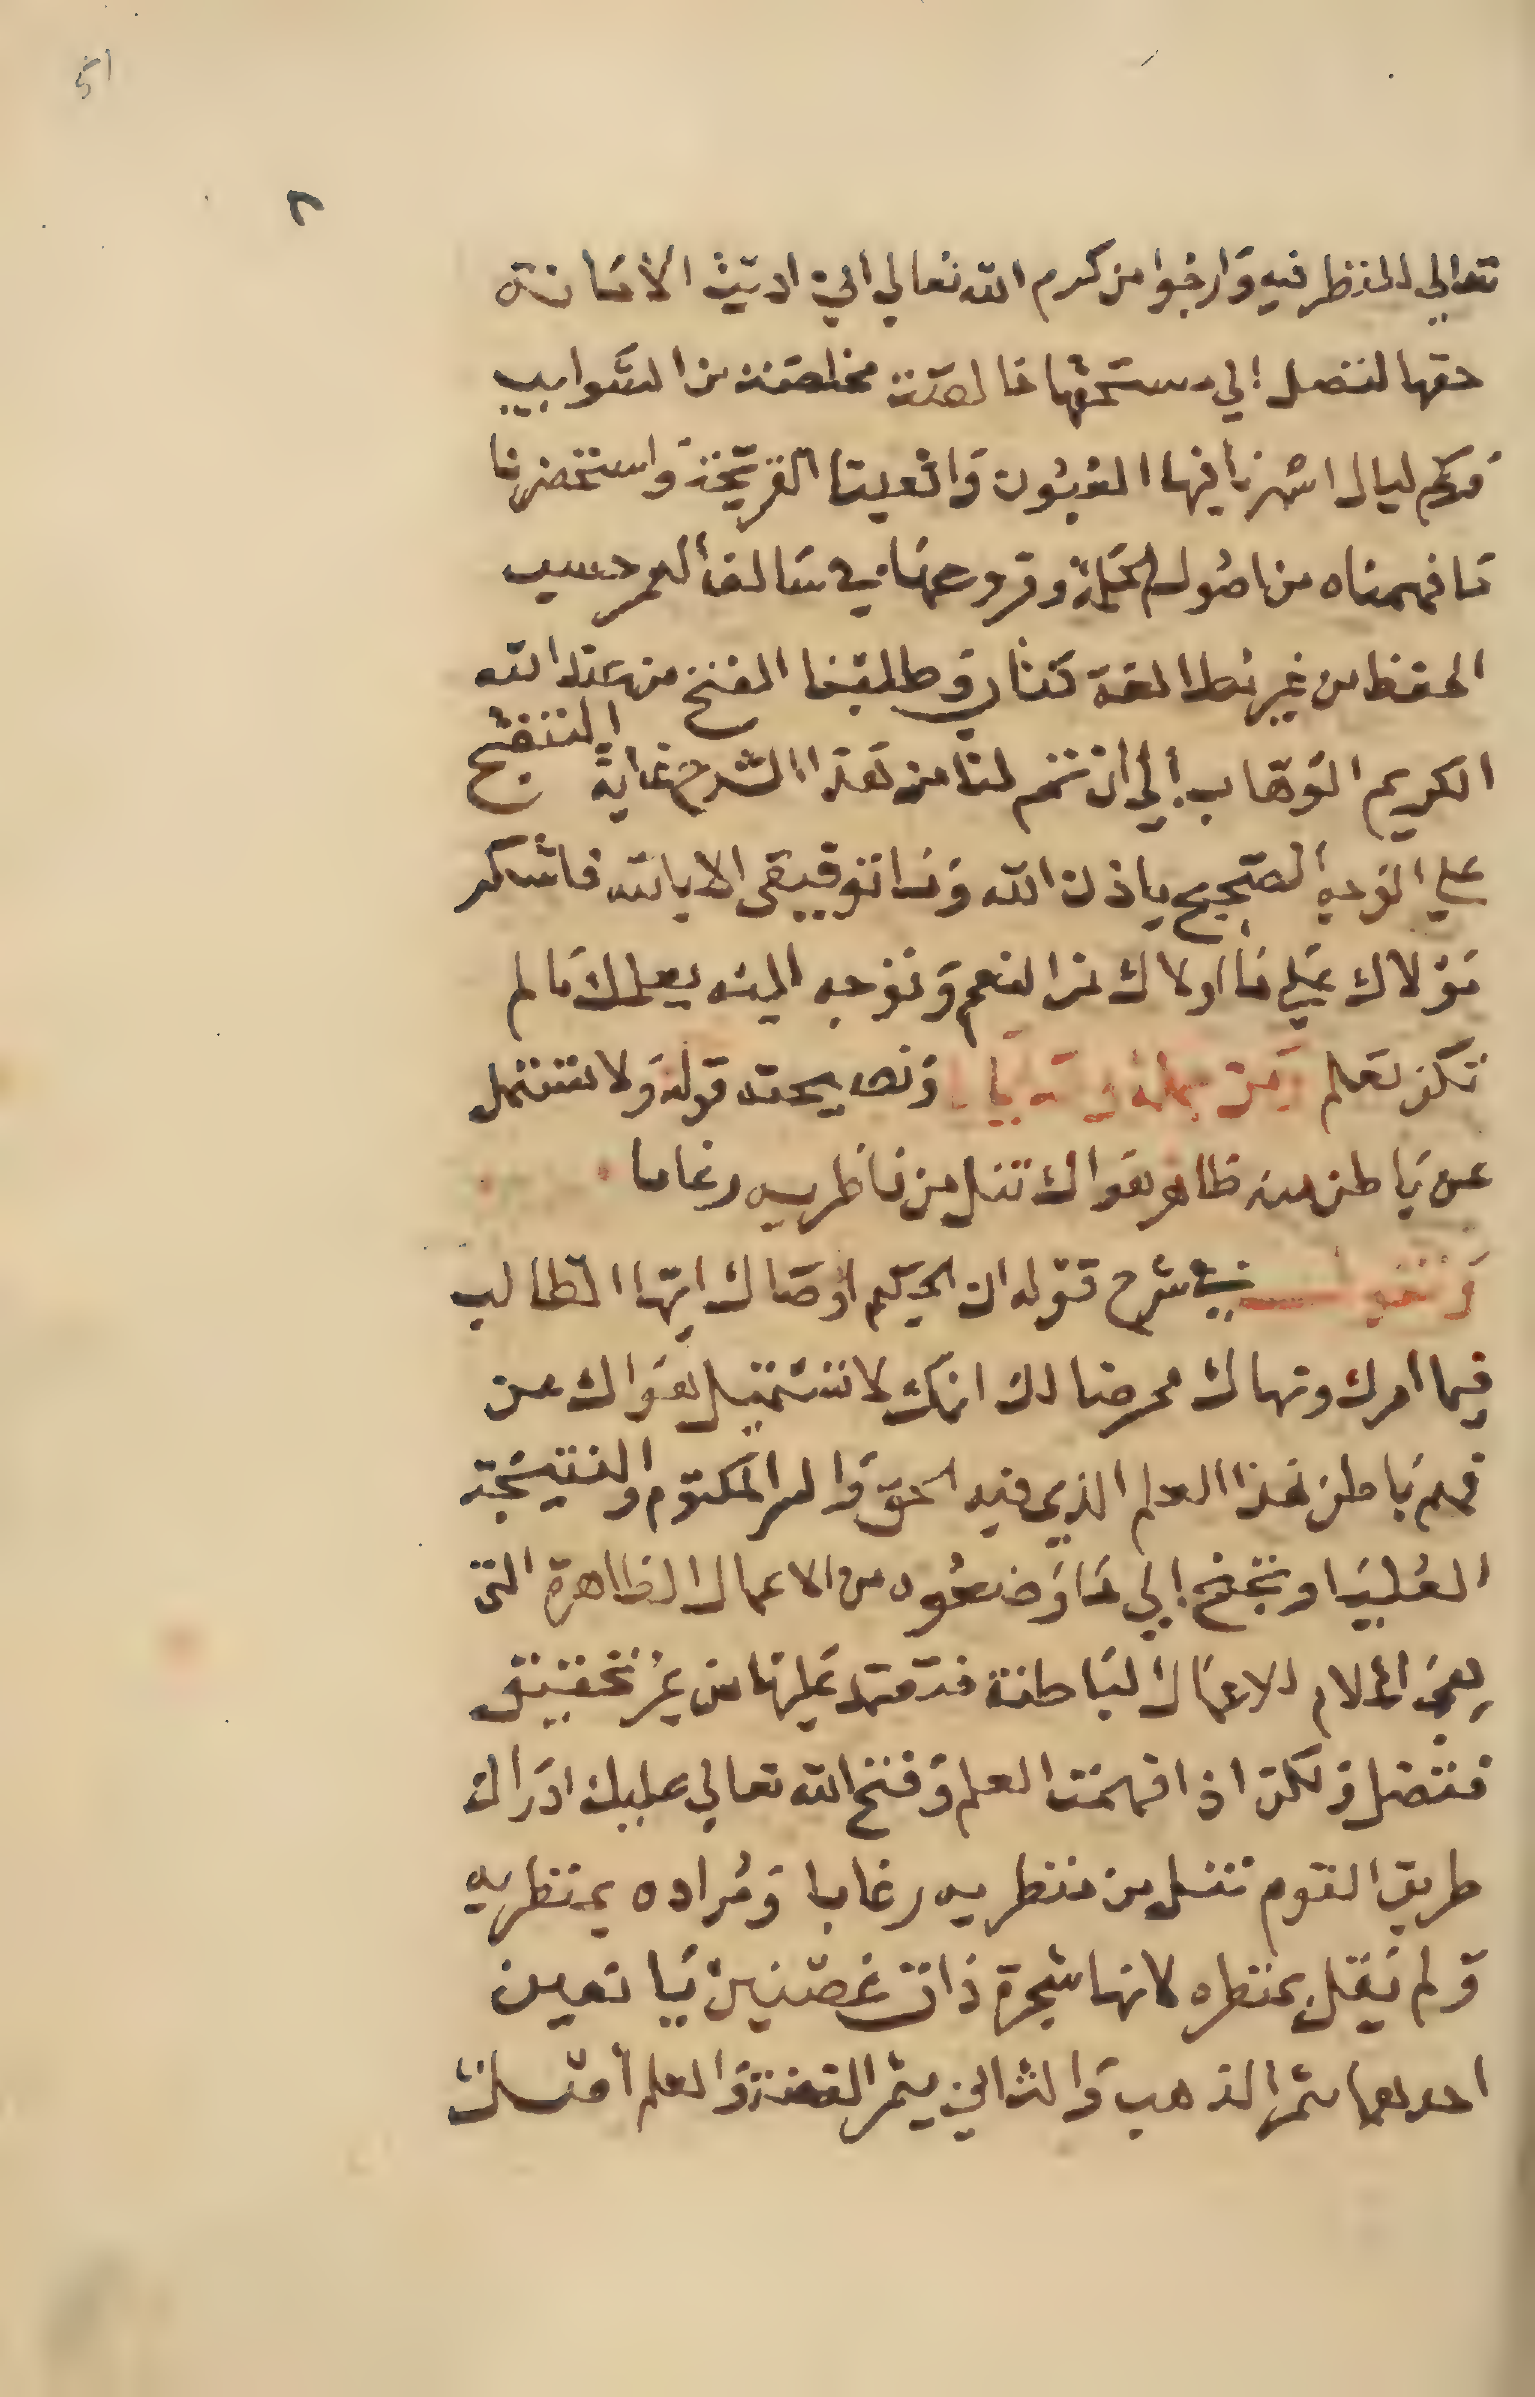 51
٢
تعالي للنظر فيه وارجوا من كرم الله تعالي اني اديت الامانة
حقها لتصل الي مستحقها خالصة مخلصة من الشوايب
فكم ليال اسهرنا فيها العيون واتعبنا القريحة واستحضرنا
ما فهمناه من اصول الحكمة وفروعها في سالف العمر حسب
الحفظ من غير مطالعة كتاب وطلبنا الفتح من عند الله
الكريم الوهاب الي ان تم لنا من هذا الشرح غاية التنقيح
علي الوجه الصحيح باذن الله وما توفيقي الا بالله فاشكر
مولاك علي ما اولاك من النعم وتوجه اليه يعلمك ما لم
تكن تعلم ومن جملة وصايا ونصيحته قوله ولا تشتمل
عن باطن منه ظاهر هواك تنل من ناظريه رغابا
ونقول في شرح قوله ان الحكيم اوصاك ايها الطالب
فيما امرك ونهاك محرضا لك انك لا تشتمل هواك عن
فهم باطن هذا العلم الذي فيه الحق والسر المكتوم والنتيجة
العليا وتجنح الي ما وضعوه من الاعمال الظاهرة التي
الاعمال الباطنة فتعتمد عليها من غير تحقيق
فتضل ولكن اذا فهمت العلم وفتح الله تعالي عليك ادراك
طريق القوم تنل من منظريه رغابا ومراده بمنظريه
ولم يقل بمنظره لانها شجرة ذات غصنين يانعين
احدهما يثمر الذهب والثاني يثمر الفضة والعلم امتسك